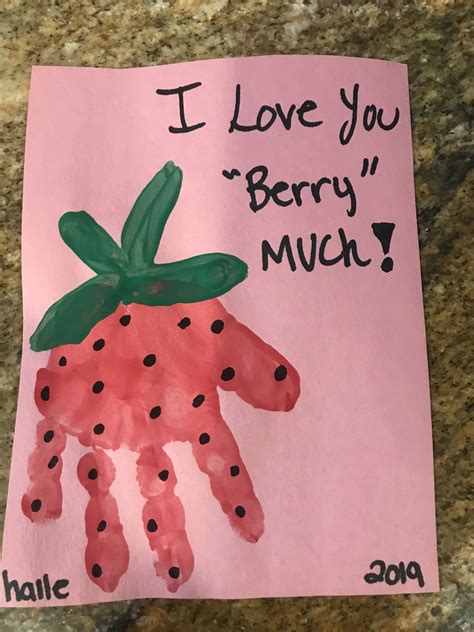 I Love You
"Berry"
MUCh!
haile
2019